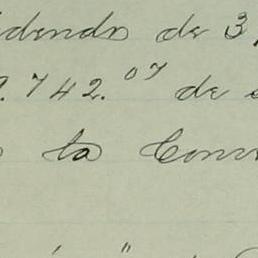 idendo de 3
9.742.07 de
la Conv